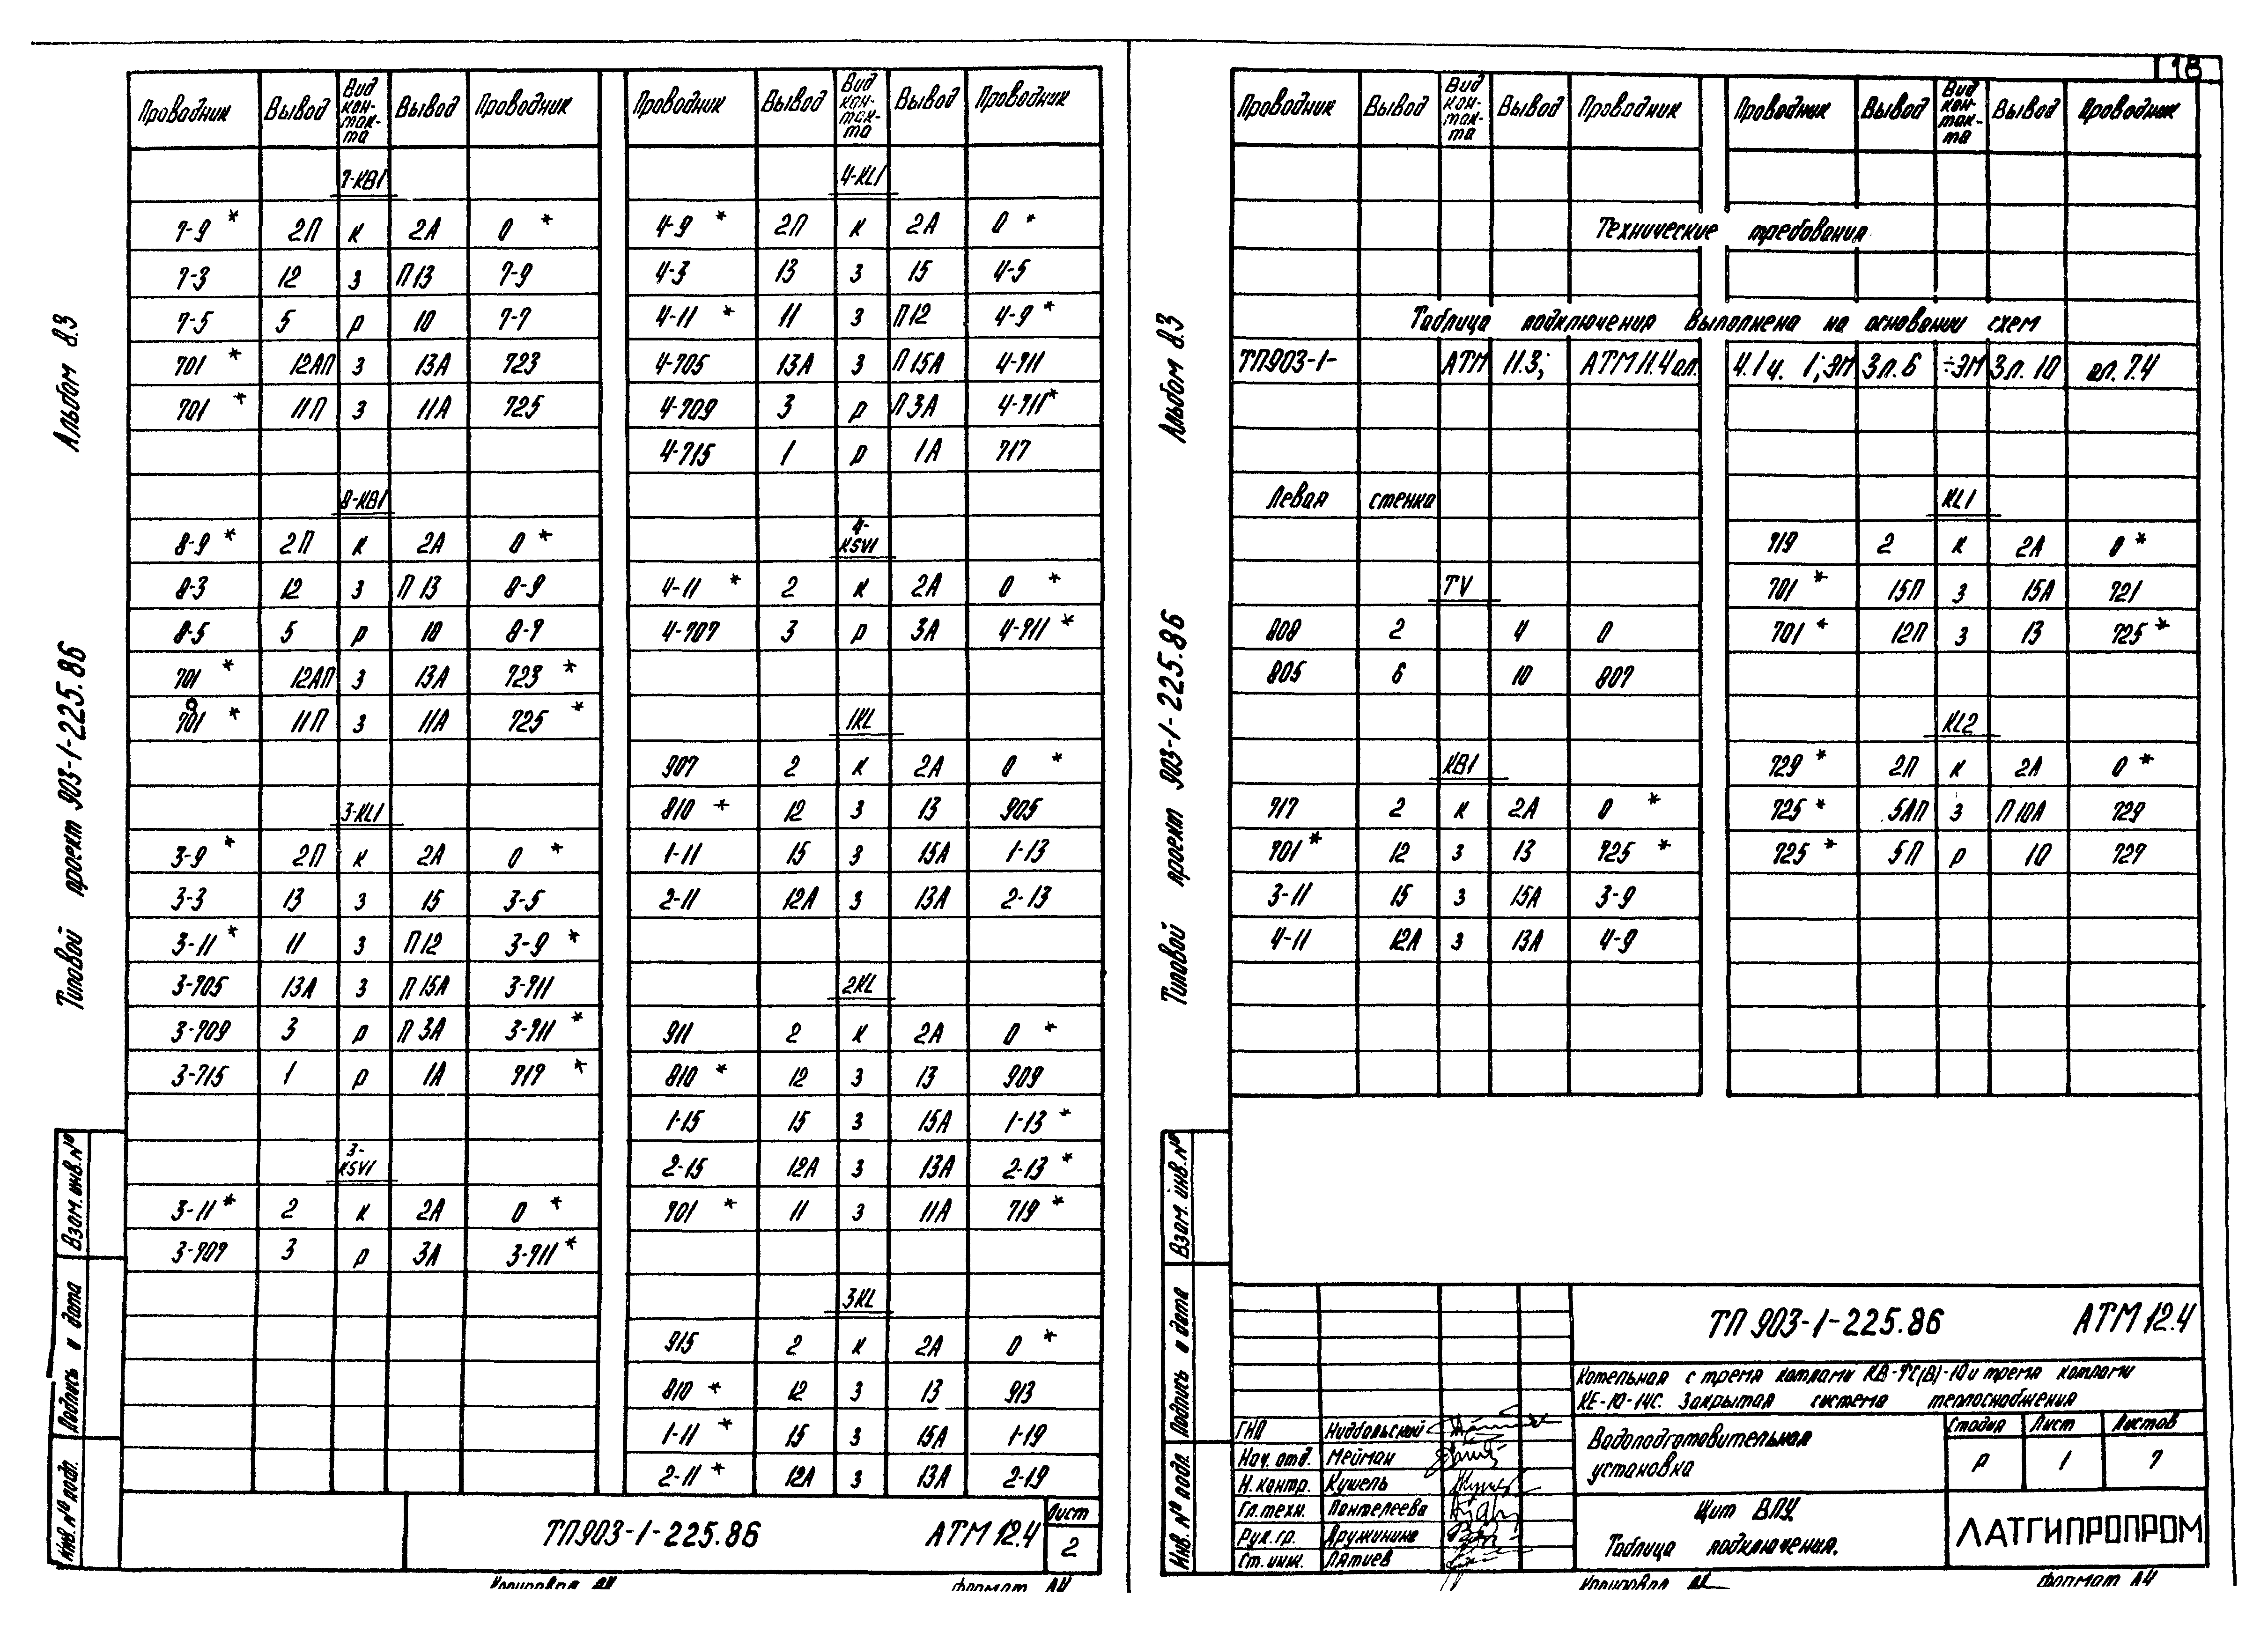 Альбом 8.3
Типовой проект 903-1-225.86
Взам. инв. №
Подпись и дата
Инв. № подл.
Проводник Вывод Вид кон-так-та Вывод Проводник
7-КВ1
7-9 * 2П к 2А 0 *
7-3 12 з П13 7-9
7-5 5 р 10 7-7
701 * 12АП з 13А 723
701 * 11П з 11А 725
8-КВ1
8-9 * 2П к 2А 0 *
8-3 12 з П13 8-9
8-5 5 р 10 8-7
701 * 12АП з 13А 723 *
701 * 11П з 11А 725 *
3-KL1
3-9 * 2П к 2А 0 *
3-3 13 з 15 3-5
3-11 * 11 з П12 3-9 *
3-705 13А з П15А 3-711
3-709 3 р П3А 3-711 *
3-715 1 р 1А 717 *
3-KSV1
3-11 * 2 к 2А 0 *
3-707 3 р 3А 3-711 *
Проводник Вывод Вид кон-так-та Вывод Проводник
4-KL1
4-9 * 2П к 2А 0 *
4-3 13 з 15 4-5
4-11 * 11 з П12 4-9 *
4-705 13А з П15А 4-711
4-709 3 р П3А 4-711 *
4-715 1 р 1А 717
4-KSV1
4-11 * 2 к 2А 0 *
4-707 3 р 3А 4-711 *
1KL
907 2 к 2А 0 *
810 * 12 з 13 905
1-11 15 з 15А 1-13
2-11 12А з 13А 2-13
2KL
911 2 к 2А 0 *
810 * 12 з 13 909
1-15 15 з 15А 1-13 *
2-15 12А з 13А 2-13 *
701 * 11 з 11А 719 *
3KL
915 2 к 2А 0 *
810 * 12 з 13 913
1-11 * 15 з 15А 1-19
2-11 * 12А з 13А 2-19
ТП903-1-225.86 АТМ 12.4
Лист
2
Копировал
Формат А4
18
Альбом 8.3
Типовой проект 903-1-225.86
Взам. инв. №
Подпись и дата
Инв. № подл.
Проводник Вывод Вид кон-так-та Вывод Проводник
Проводник Вывод Вид кон-так-та Вывод Проводник
Технические требования
Таблица подключения выполнена на основании схем
ТП903-1- АТМ 11.3; АТМ 11.4 ал. 4.1 ч. 1; ЭМ 3л. 6 ÷ЭМ 3л. 10 ал. 7.4
Левая стенка
TV
808 2 4 0
805 6 10 807
КВ1
717 2 к 2А 0 *
701 * 12 з 13 725 *
3-11 15 з 15А 3-9
4-11 12А з 13А 4-9
KL1
719 2 к 2А 0 *
701 * 15П з 15А 721
701 * 12П з 13 725 *
KL2
729 * 2П к 2А 0 *
725 * 5АП з П10А 729
725 * 5П р 10 727
ТП 903-1-225.86 АТМ 12.4
Котельная с тремя котлами КВ-ТС(В)-10 и тремя котлами
КЕ-10-14С. Закрытая система теплоснабжения
ГИП Нидбальский
Нач. отд. Мейман
Н. контр. Кушель
Гл. техн. Пантелеева
Рук. гр. Дружинина
Ст. инж. Пятиев
Водоподготовительная
установка
Стадия Лист Листов
Р 1 7
Щит ВПУ.
Таблица подключения.
ЛАТГИПРОПРОМ
Копировал
Формат А4